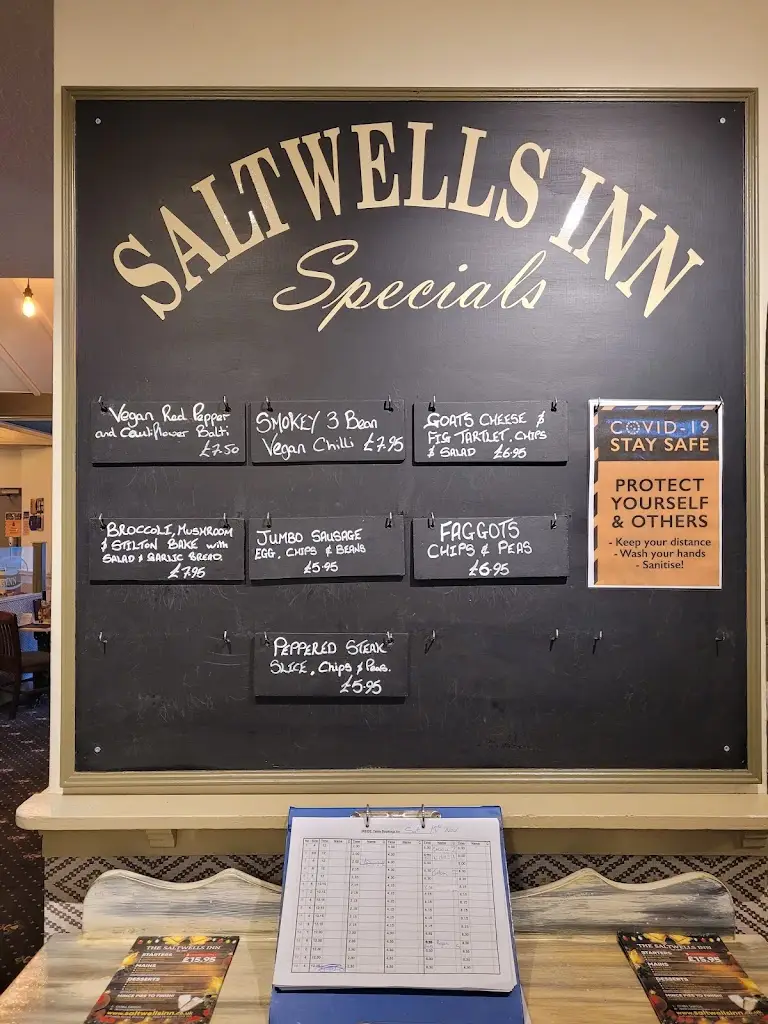 SALTWELLS INN
Specials
Vegan Red Pepper
and Cauliflower Balti
£7.50
SMOKEY 3 Bean
Vegan Chilli £7.95
GOATS CHEESE &
FIG TARTLET, CHIPS
& SALAD £6.95
COVID-19
STAY SAFE
PROTECT
YOURSELF
& OTHERS
- Keep your distance
- Wash your hands
- Sanitise!
BROCCOLI, MUSHROOM
& STILTON BAKE with
SALAD & GARLIC BREAD.
£7.95
JUMBO SAUSAGE
EGG, CHIPS & BEANS
£5.95
FAGGOTS
CHIPS & PEAS
£6.95
PEPPERED STEAK
SLICE, Chips & Peas.
£5.95
THE SALTWELLS INN
STARTERS
£15.95
MAINS
DESSERTS
www.saltwellsinn.co.uk
THE SALTWELLS INN
STARTERS
£15.95
MAINS
DESSERTS
www.saltwellsinn.co.uk